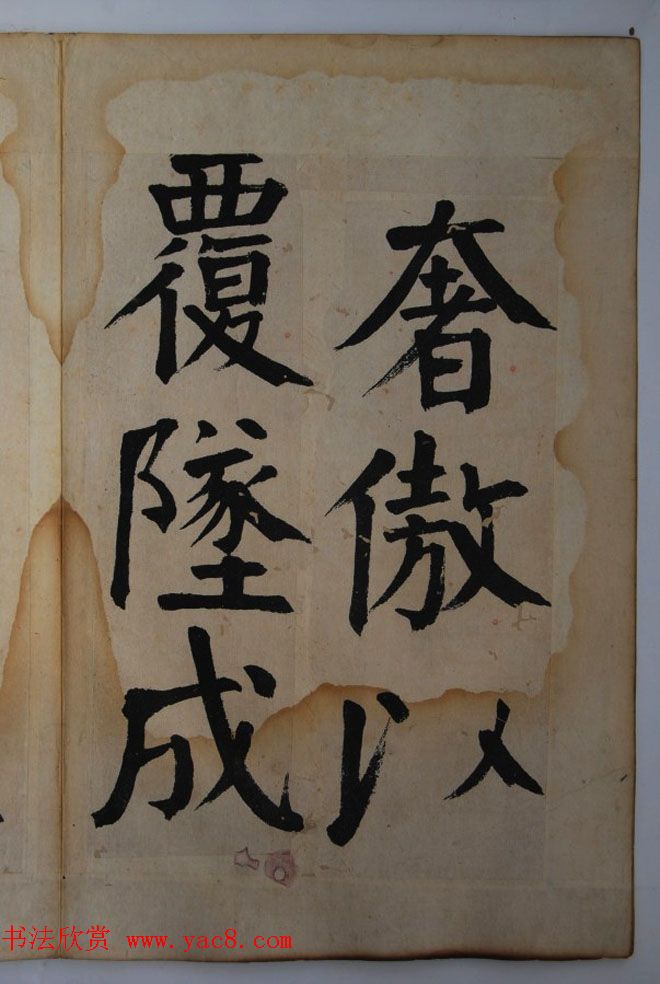 奢傲以
覆墜成
书法欣赏 www.yac8.com